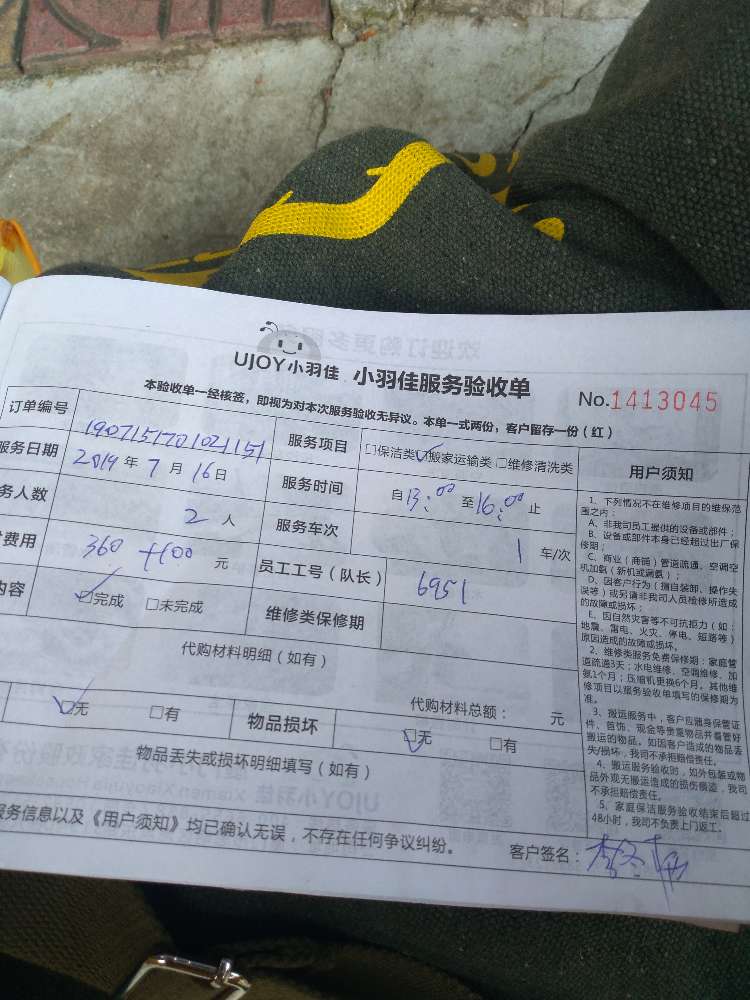 UJOY小羽佳 小羽佳服务验收单 No.1413045
本验收单一经核签，即视为对本次服务验收无异议。本单一式两份，客户留存一份（红）
订单编号 1907151701021151 服务项目 □保洁类 ☑搬家运输类 □维修清洗类 用户须知
服务日期 2019年7月16日 服务时间 自13:00至16:00止
务人数 2人 服务车次 1 车/次
费用 360+100 元 员工工号（队长） 6951
内容 ☑完成 □未完成 维修类保修期
代购材料明细（如有）
代购材料总额： 元
☑无 □有 物品损坏 ☑无 □有
物品丢失或损坏明细填写（如有）
服务信息以及《用户须知》均已确认无误，不存在任何争议纠纷。
客户签名：
1、下列情况不在维修项目的维保范
围之内：
A、非我司员工提供的设备或部件；
B、设备或部件本身已经超过出厂保
修期；
C、商业（商铺）管道疏通、空调空
机加氨（新机或漏氨）；
D、因客户行为（擅自装卸、操作失
误等）或另请非我司人员检修所造成
的故障或损坏；
E、因自然灾害等不可抗拒力（如：
地震、雷电、火灾、停电、短路等）
原因造成的故障或损坏。
2、维修类服务免费保修期：家庭管
道疏通3天；水电维修、空调维修、加
氨1个月；压缩机更换6个月。其他维
修项目以服务验收单填写的保修期为
准。
3、搬运服务中，客户应随身保管证
件、首饰、现金等贵重物品并看管好
搬运的物品。如因客户造成的物品丢
失/损坏，我司不承担赔偿责任。
4、搬运服务验收时，如外包装或物
品外观无搬运造成的损伤痕迹，我司
不承担赔偿责任。
5、家庭保洁服务验收结束后超过
48小时，我司不负责上门返工。